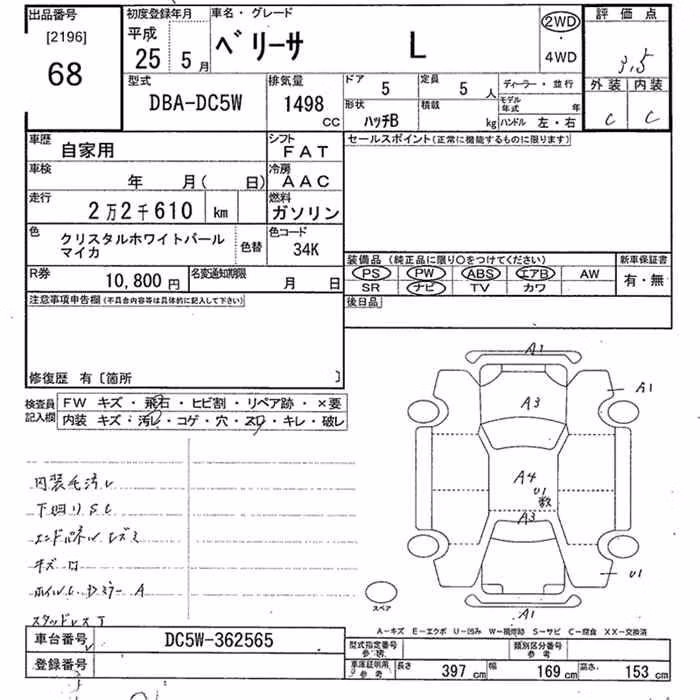 出品番号
[2196]
68
初度登録年月
平成
25 5月
車名・グレード
ベリーサ L
2WD
・
4WD
評価点
3.5
型式
DBA-DC5W
排気量
1498
CC
ドア 5
定員 5人
形状 ハッチB
積載 kg
ディーラー・並行
モデル年式 年
ハンドル 左・右
外装 内装
C C
車歴
自家用
シフト
FAT
セールスポイント(正常に機能するものに限ります)
車検
年 月( 日)
冷房
AAC
走行
2万2千610 km
燃料
ガソリン
色
クリスタルホワイトパール
マイカ
色替
色コード
34K
装備品(純正品に限り○をつけてください)
新車保証書
PS PW ABS エアB AW
SR ナビ TV カワ
有・無
R券
10,800円
名変通知期限
月 日
後日品
注意事項申告欄(不具合内容等は具体的に記入して下さい)
修復歴 有〔箇所 〕
検査員
記入欄
FW キズ・飛石・ヒビ割・リペア跡・×要
内装 キズ・汚レ・コゲ・穴・スリ・キレ・破レ
A1
A1
A3
A4
U1
数
A3
U1
A1
内装毛汚レ
下回りSC
スペア
スタッドレス
A-キズ E-エクボ U-凹み W-補修跡 S-サビ C-腐食 XX-交換済
車台番号
DC5W-362565
登録番号
型式指定番号
参考
類別区分番号
参考
車庫証明用
参考
長さ 397cm
幅 169cm
高さ 153cm